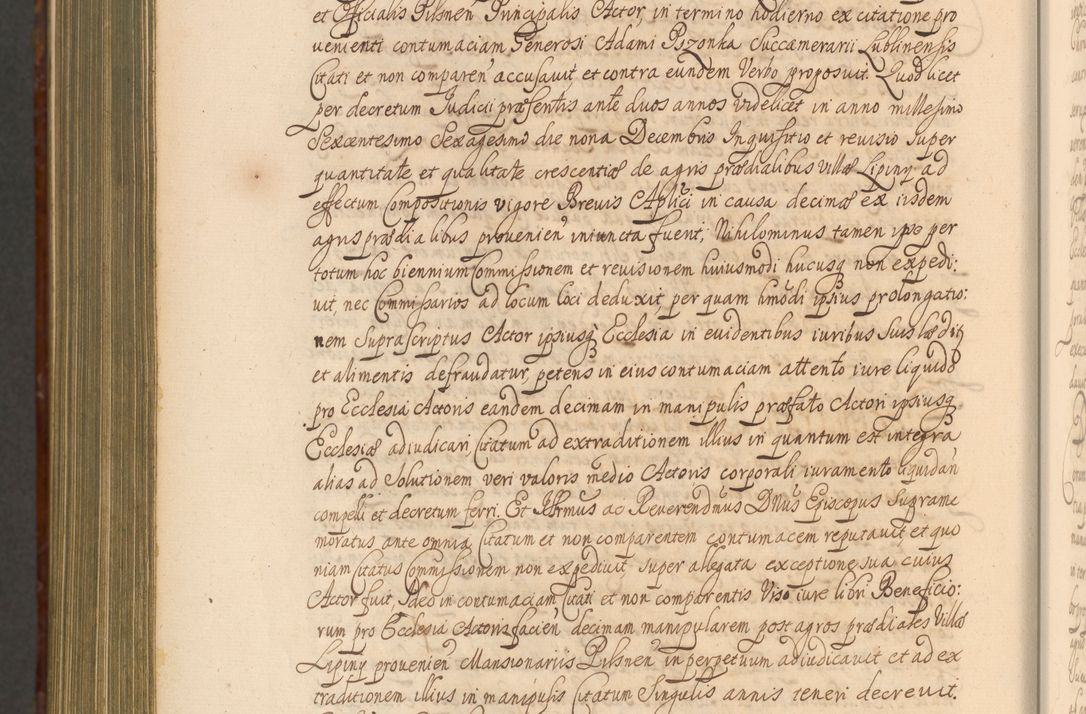 et Officialis Pilsnen Principalis Actor, in termino hodierno ex citatione pro
venienti contumaciam Generosi Adami Pszonka Succamerarii Lublinensis
Citati et non comparen̄ accusavit et contra eundem Verbo proposuit. Quod licet
per decretum Judicii præsentis ante duos annos videlicet in anno millesimo
Sexcentesimo Sexagesimo die nona Decembris Inquisitio et revisio super
quantitate et qualitate crescentiæ de agris prædialibus villæ Lipiny ad
effectum Compositionis vigore Brevis Aplici in causa decimæ ex iisdem
agris prædialibus provenien̄ iniuncta fuerit, Nihilominus tamen ipse per
totum hoc biennium Commissionem et revisionem huiusmodi hucusq non expedi:
vit, nec Commissarios ad locum loci deduxit, per quam hmōdi ipsius prolongatio:
nem Suprascriptus Actor ipsiusq Ecclesia in evidentibus iuribus suis læditꝛ
et alimentis defraudatur, petens in eius contumaciam attento iure liquido
pro Ecclesia Actoris eandem decimam in manipulis præfato Actori ipsiusq
Ecclesiæ adiudicari Citatum ad extraditionem illius in quantum est integra
alias ad Solutionem veri valoris medio Actoris corporali iuramento liquidan̄
compelli et decretum ferri. Et Illrmus ac Reverendmus Dnus Episcopus suprame
moratus ante omnia Citatum et non comparentem contumacem reputavit et quo
niam Citatus Commissionem non expedivit super allegata exceptione sua cuius
Actor fuit, Ideo in contumaciam Citati et non comparentis Viso iure libri Beneficio:
rum pro Ecclesia Actoris facien̄ decimam manipularem post agros prædiales Villæ
Lipiny provenien̄ Mansionariis Pilsnen̄ in perpetuum adiudicavit et ad ex
traditionem illius in manipulis Citatum Singulis annis teneri decrevit.